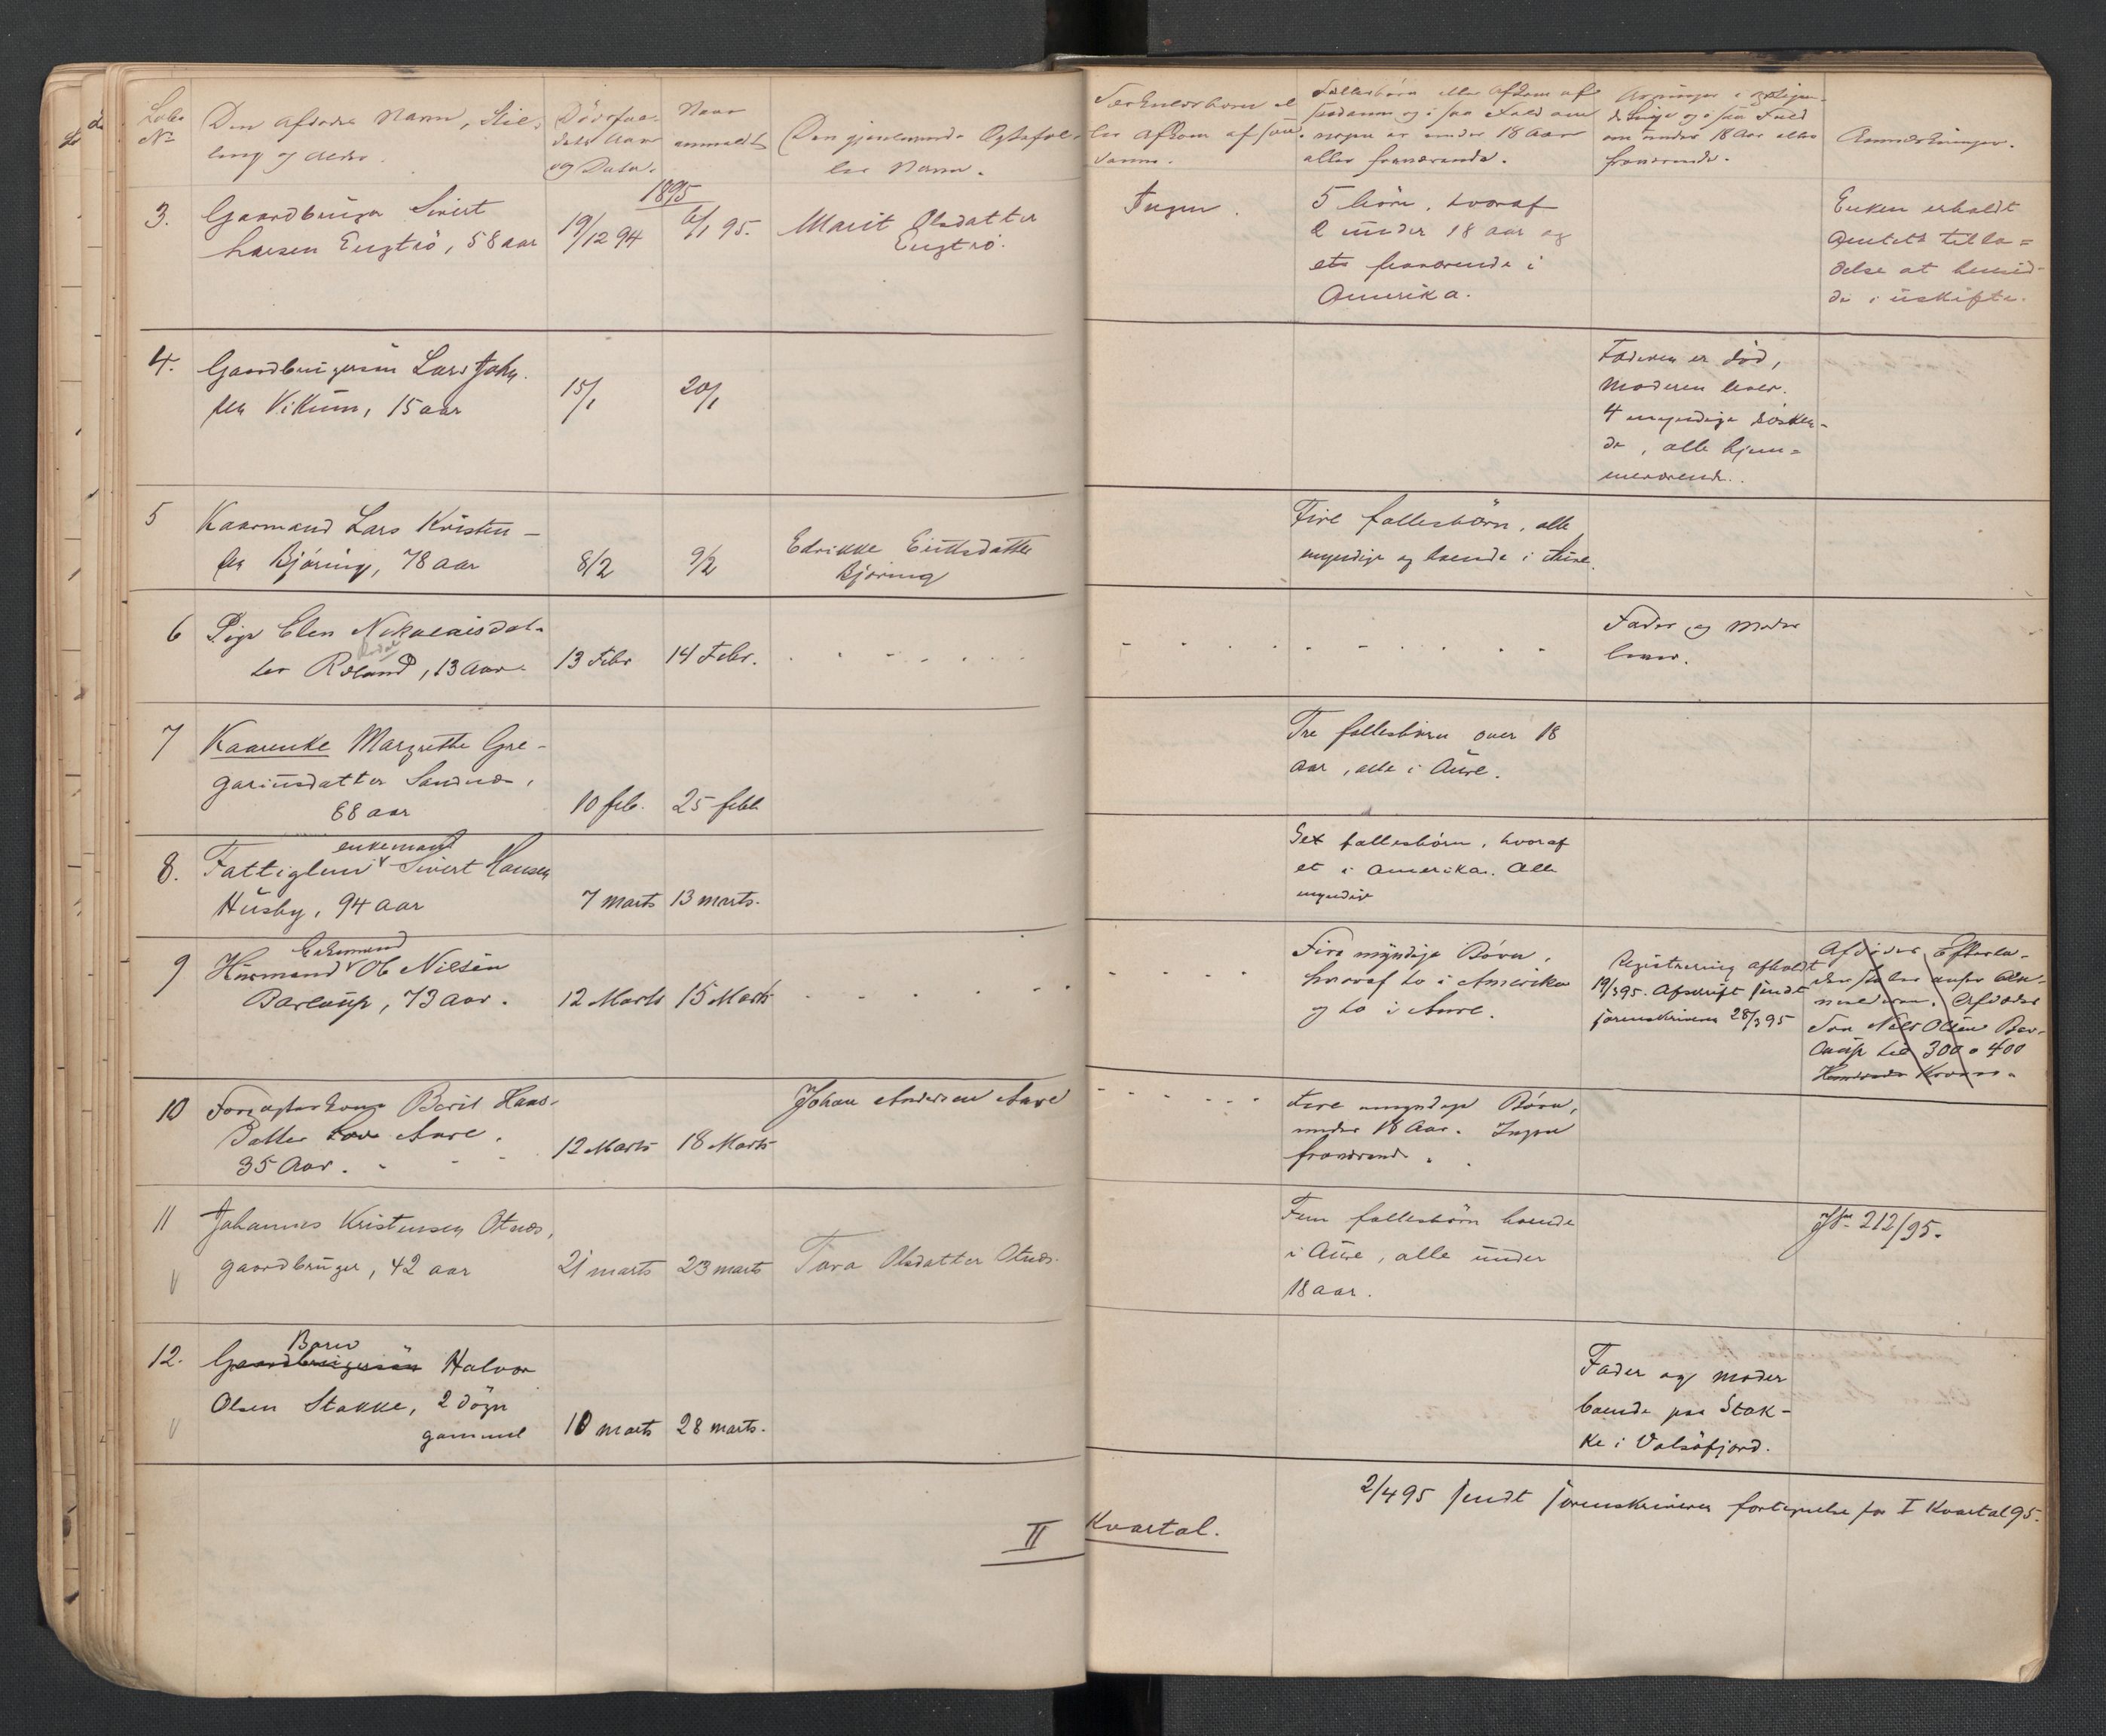 Løbe Den afdødes Navn, Stil-
No ling og Alder.
Dødsfal-
dets Aar
og Datum.
Naar
anmeldt
Den gjenlevende Ægtefæl-
les Navn.
Særkulsbørn el
ler Afkom af saa-
danne.
Fællesbørn eller Afkom af
saadanne og i saa Fald om
nogen er under 18 Aar
eller fraværende.
Arvinger i
og i saa Fald
om under 18 Aar eller
fraværende.
Anmærkninger.
1895
3. Gaardbruger Sivert
Larsen Engtrö, 58 aar
19/12 94
6/1 95.
Marit Olsdatter
Engtrö.
Ingen.
5 börn, hvoraf
2 under 18 aar og
et fraværende i
Amerika.
Enken erholdt
Amtets tilla=
delse at hensid-
de i uskifte.
4. Gaardbrugersön Lars John
sen Vikum, 15 aar
15/1
20/1
Faderen er död,
Moderen lever.
4 umyndige sösken-
de, alle hjem=
meværende.
5 Kaarmand Lars Kristen-
sen Björing, 78 aar
8/2
9/2
Edrikke Eriksdatter
Björing
Fire fællesbörn, alle
myndige og boende i Aure.
6 Pige Elen Nikolaisdat-
ter Roland, 13 Aar
13 Febr
14 Febr.
Fader og Moder
lever.
7 Kaarenke Margrethe Gre-
gariusdatter Sandnes,
88 aar
10 feb.
25 febr
Tre fællesbörn over 18
aar, alle i Aure.
8. Fattiglem enkemand Sivert Hansen
Husby, 94 aar
7 marts
13 marts.
Sex fællesbörn, hvoraf
et i Amerika. Alle
myndige
9 Husmand Enkemand Ole Nilsen
73 Aar.
12 Marts
15 Marts
Fire myndige Börn,
hvoraf to i Amerika
og to i Aure.
Registrering afholdt
19/3 95. Afskrift sendt
sorenskriveren 28/3 95
Afdødes Efterla-
Afdødes
Søn Nils Olsen Bar-
til 300 a 400
Kroner.
10 Berit Hans-
Datter Aure,
35 Aar.
12 Marts
18 Marts
Johan Andersen Aure
Fire umyndige Börn,
under 18 Aar. Ingen
fraværende.
11 Johannes Kristensen Otnes,
gaardbruger, 42 aar
21 marts
23 marts
Tara Olsdatter Otnes.
Fem fællesbörn boende
i Aure, alle under
18 aar.
JNr 212/95.
12. Barn
Gaardbrugersön Halvor
Olsen Stokke, 2 dögn
gammel
10 marts
28 marts.
Fader og moder
boende paa Stok-
ke i Valsöfjord.
2/4 95 sendt sorenskriveren fortegnelse for I Kvartal 95.
II Kvartal.